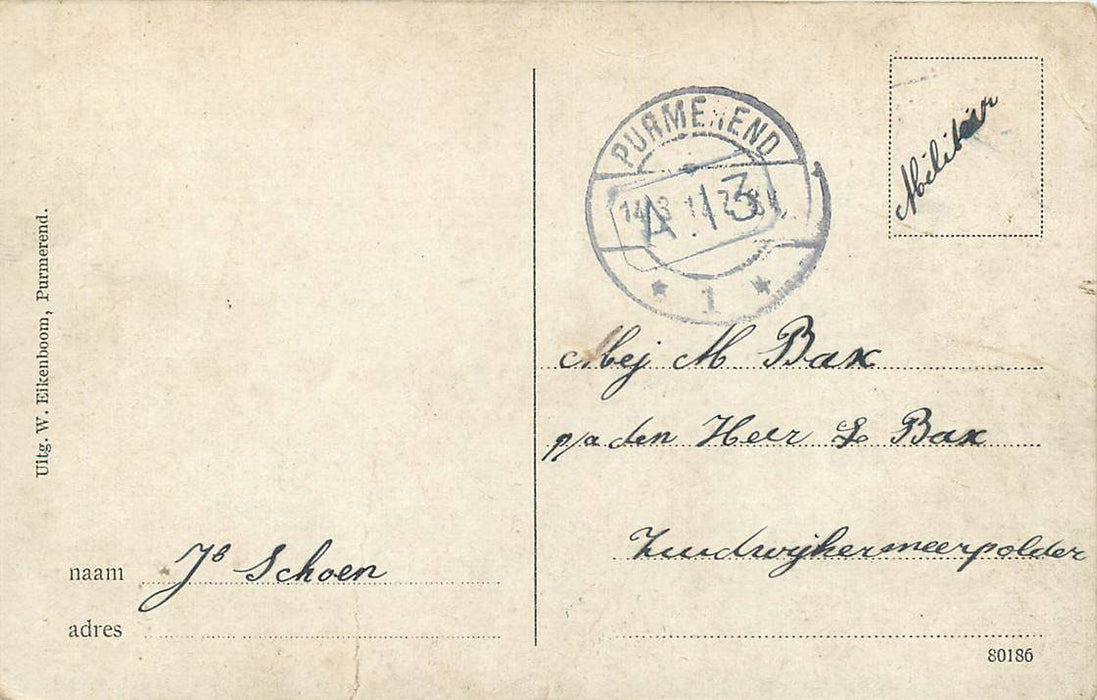 Uitg. W. Eikenboom, Purmerend.
PURMEREND
A.13
* 1 *
Militair
Mej M. Bax
p/a den Heer L Bax
Zuidwijkermeerpolder
naam Js Schoen
adres
80186